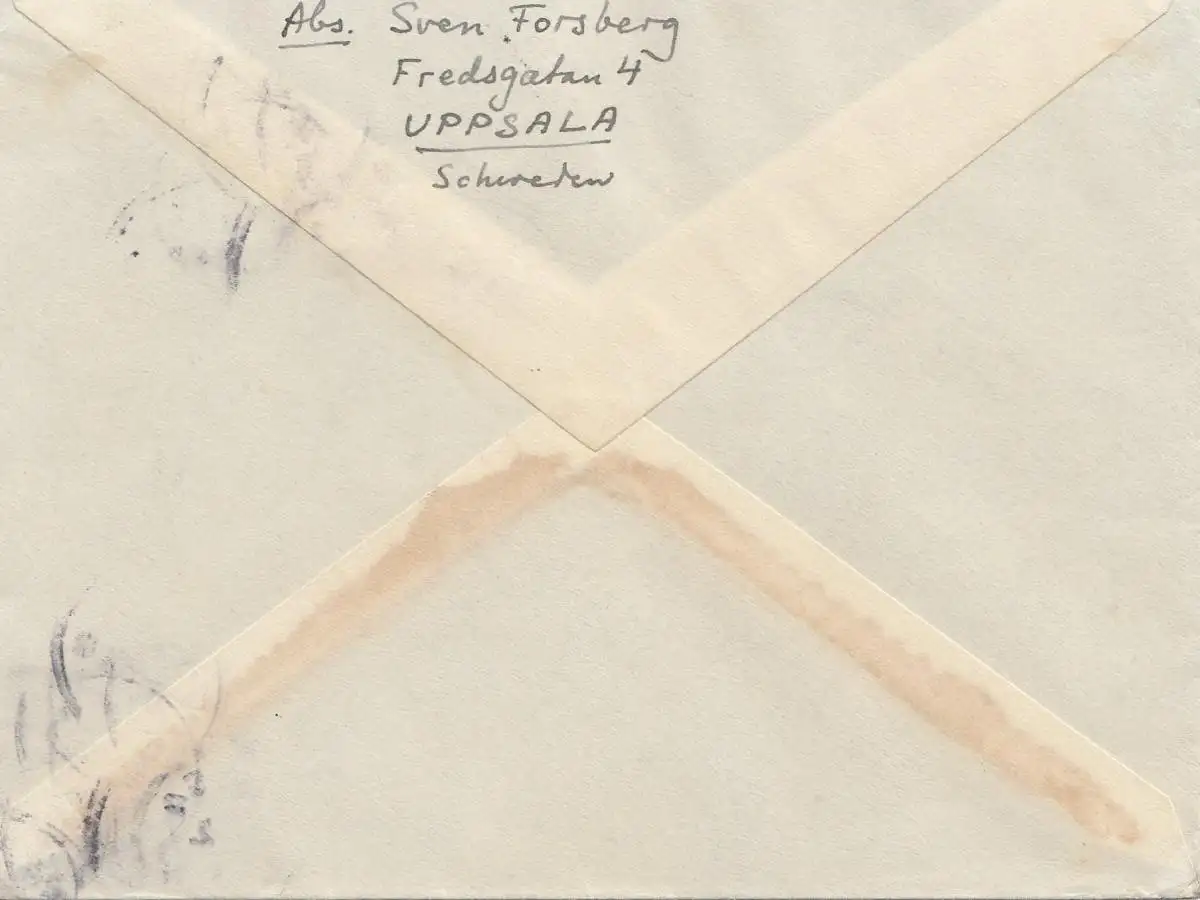 Abs. Sven Forsberg
Fredsgatan 4
UPPSALA
Schweden